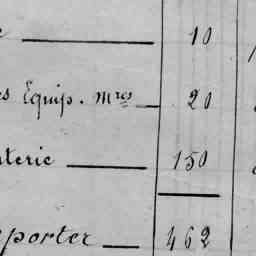 10
es Equip. Mres 20
terie 150
porter 462